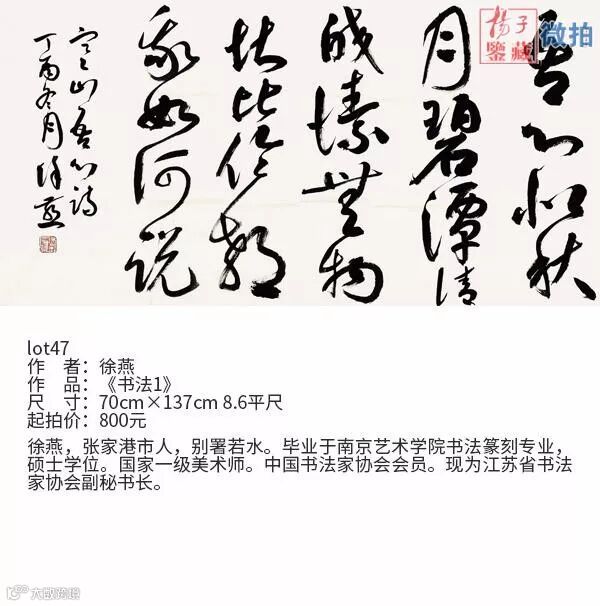 吾心似秋
月碧潭清
皎潔無物
堪比倫教
我如何説
寒山吾心詩
丁酉冬月徐燕
揚子
鑒藏
微拍
lot47
作　者：徐燕
作　品：《书法1》
尺　寸：70cm×137cm 8.6平尺
起拍价：800元
徐燕，张家港市人，别署若水。毕业于南京艺术学院书法篆刻专业，
硕士学位。国家一级美术师。中国书法家协会会员。现为江苏省书法
家协会副秘书长。